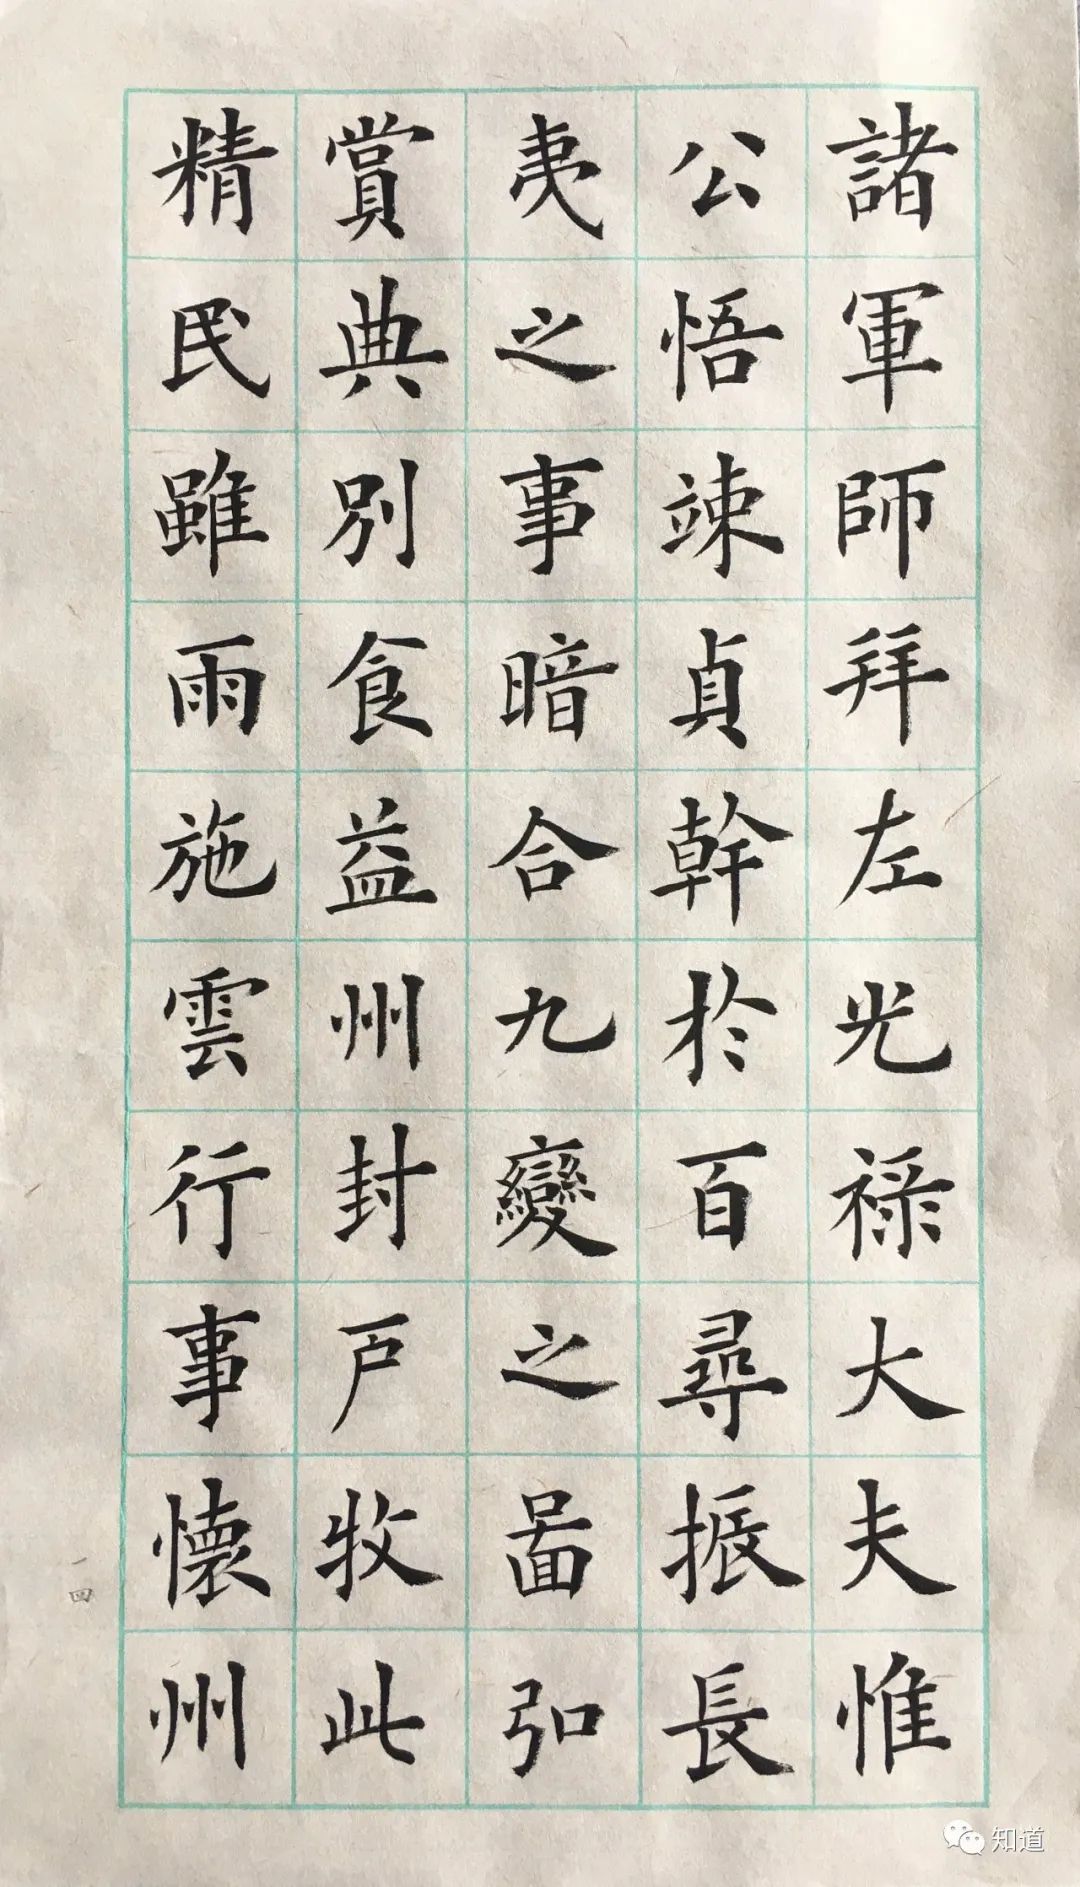 諸軍師拜左光祿大夫惟
公悟竦貞幹於百尋振長
夷之事暗合九變之啚弘
賞典別食益州封戶牧此
精民雖雨施雲行事懷州
四
知道